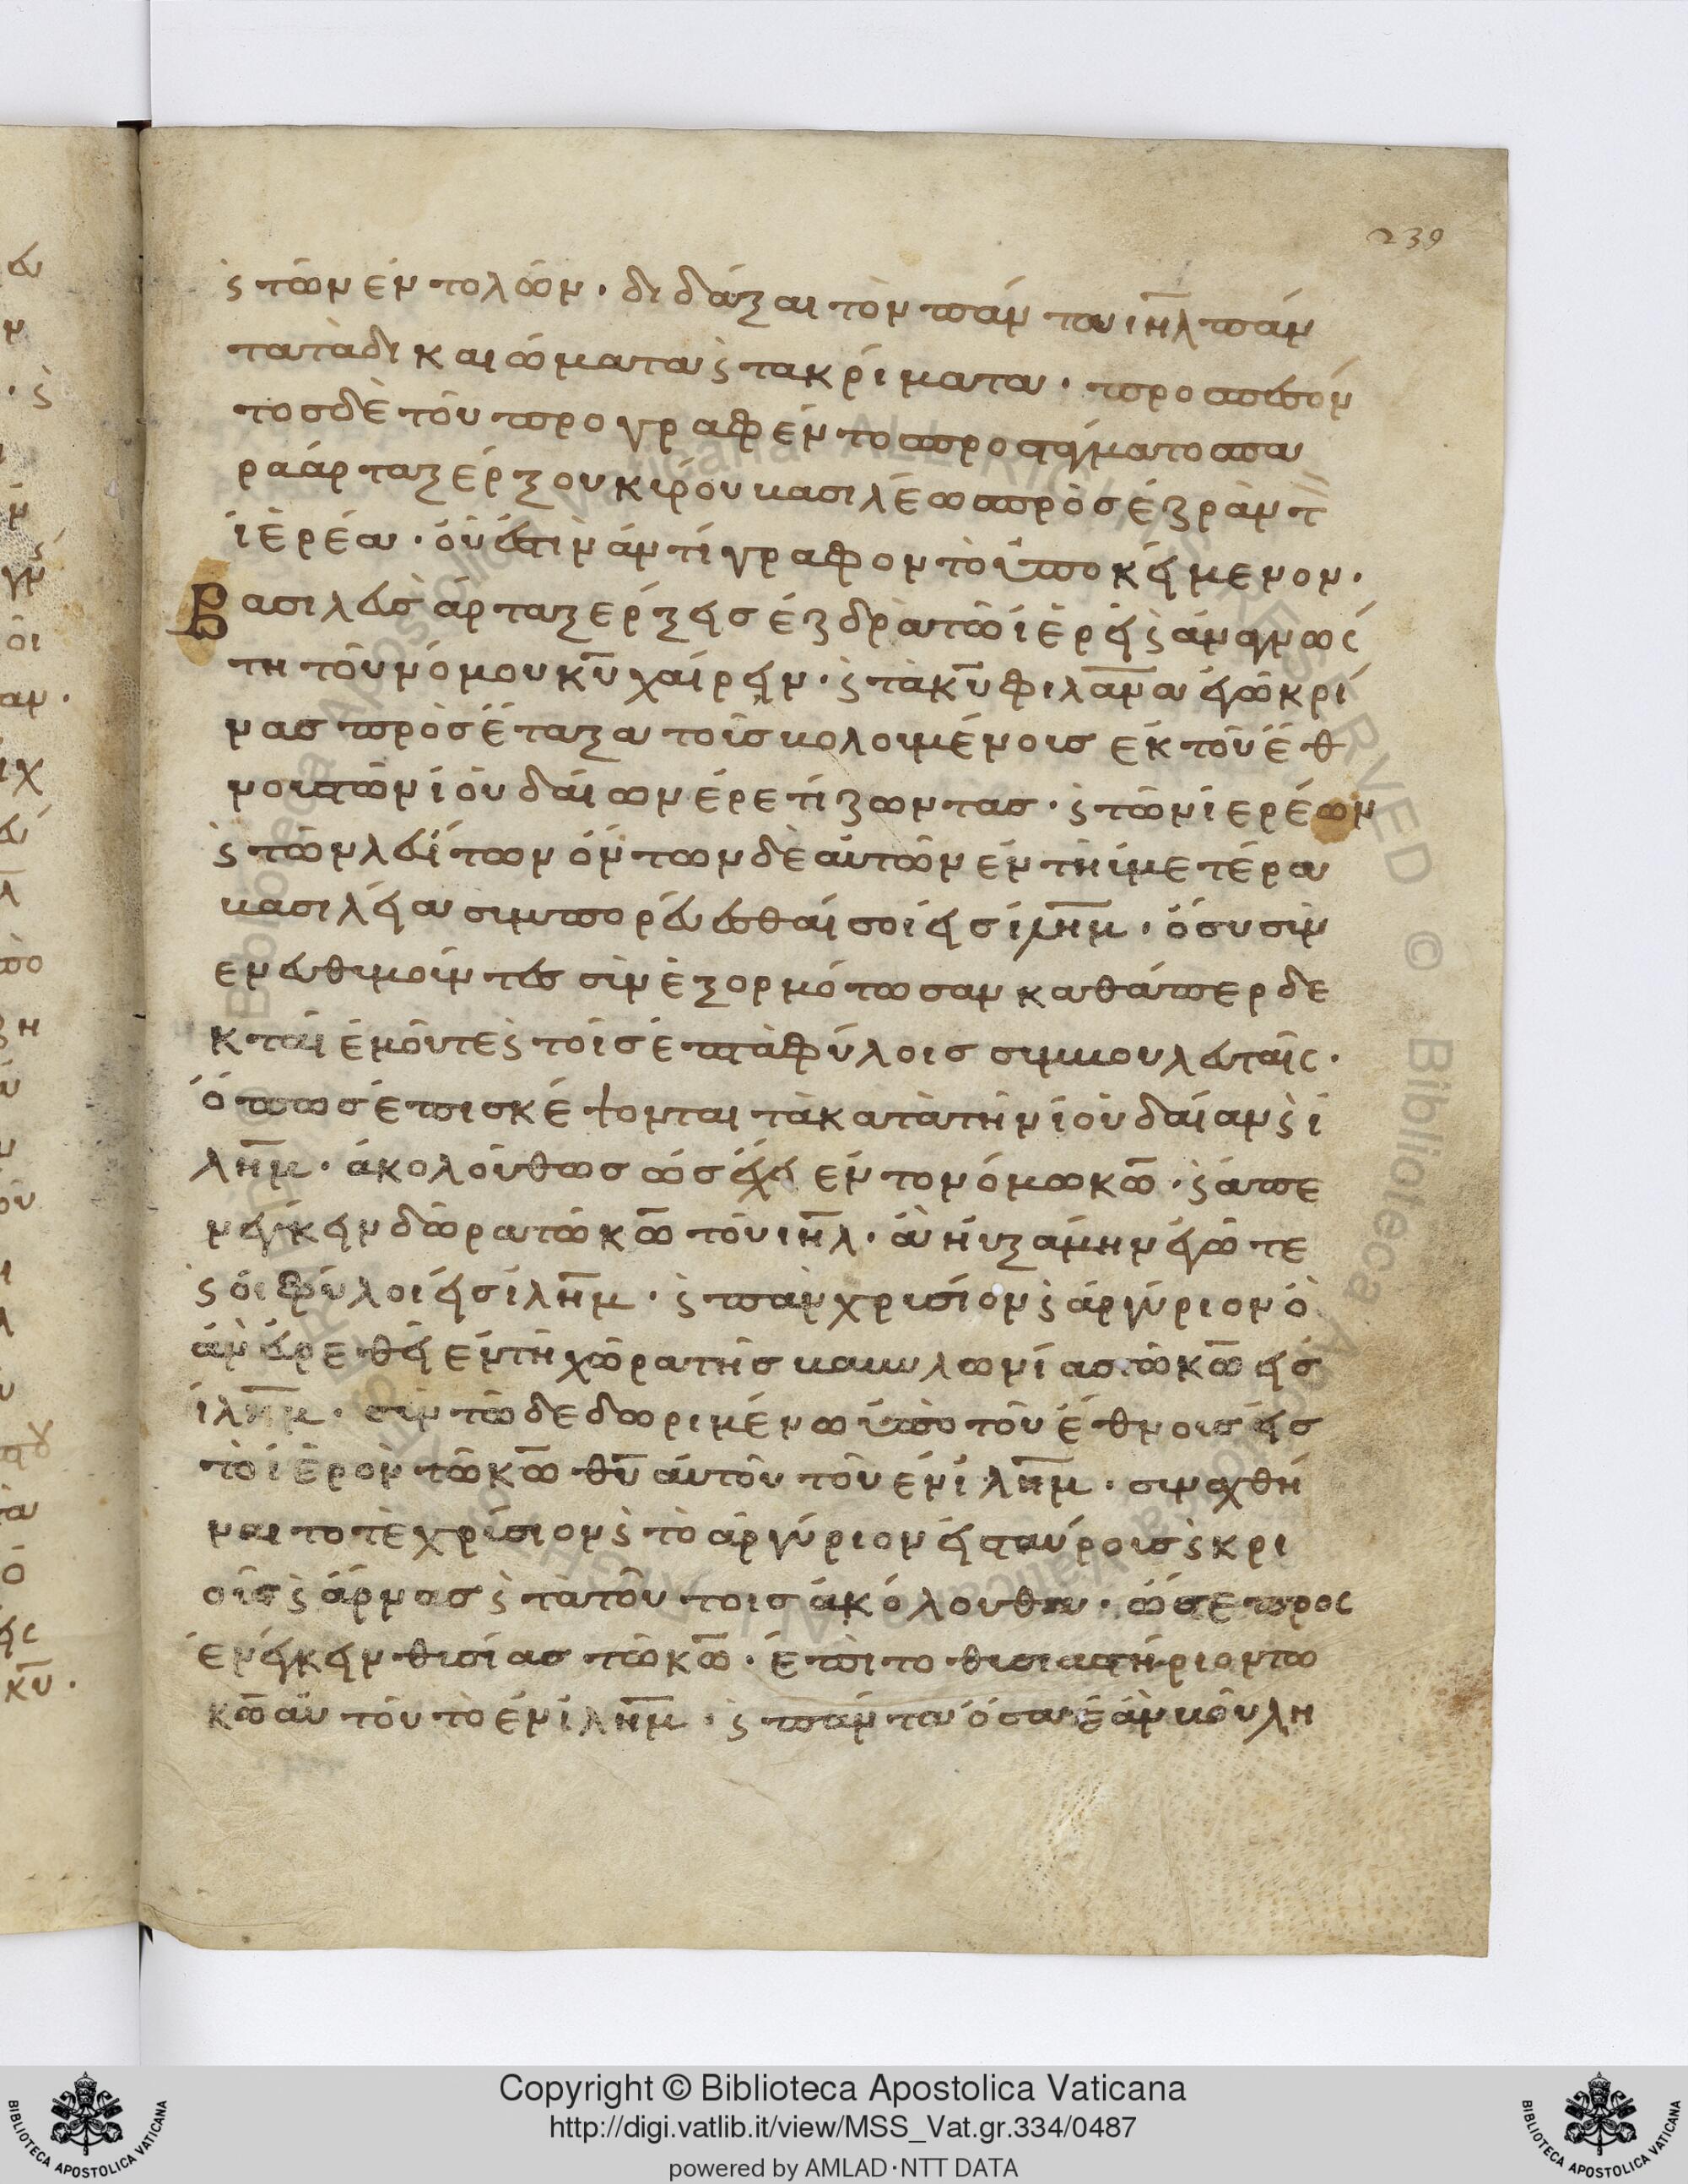 239
ϛ τῶν ἐντολῶν · διδάξαι τὸν πάν του ιη̅λ πάν
τατὰδικαιώματα ϛ τακρίματα · προσπεσόν
τοσδὲ τοῦ προγραφέντοσπροστάγματοσπα
ραἀρταξέρξουκιρόυ βασιλέωσπρὸσἔζρὰν τ
ἱερέα · οὗ ἐστὶν ἀντίγραφον τὸ ὑποκείμενον ·
Βασιλεὺσ ἀρταξέρξησ ἔζδρὰτῶἱερεῖ ϛ ἀναγνωσ
τη τοῦνόμουκυ̅ χαίρειν · ϛ τὰκυ̅ φιλα̅να ἐγὼκρί
νασ πρὸσέταξα τοῖσ βολοιμένοισ ἐκ τοῦ ἔθ
νουστῶν ἰουδαίων ἐρετίζωντασ · ϛ τῶν ἱερέων
ϛ τῶν λευϊτων ὄντων δὲ αὐτῶν ἐν τῆ ἱμετέρα
βασιλεία σιμπορεύεσθαί σοι εἰσ ἱλη̅μ · ὅσυσὶν
ενευθιμοίντεσ σὶν ἐξορμότωσαν καθάπερ δε
κται ἐμοῦτεϛ τοῖσ ἑπτὰφύλοισ σιμβουλευταῖς ·
ὅπωσ ἐπισκέψονται τὰκατὰτὴν ἰουδαίαν ϛ ἱ
λη̅μ · ἀκολούθωσ ὡσ ἔχει ἐν τονόμωκω̅ · ϛ ἀπε
νεγκεῖν δῶρατῶκω̅ τοῦ ιη̅λ · ἃ ηὐξάμην ἐγώ τε
ϛ οἱ φύλοι εἰσ ἱλη̅μ · ϛ πὰν χρισίον ϛ ἀργύριον ὃ
ἂν εὑρεθῆ ἐντῆ χώρατῆσ βαβυλωνίασ τῶκω̅ εἰσ
ἱλη̅μ · σὶν τῶ δεδωριμένω ὑπὸ τοῦ ἔθνουσ εἰσ
τὸ ἱερὸν τῶκω̅ θυ̅ αὐτοῦ τοῦ ἐν ἱλη̅μ · σιναχθῆ
ναι το τὲ χρίσιον ϛ τὸ ἀργύριον εἰσταύρουσ ϛ κρι
οὺσ ϛ ἄρνασ ϛ τὰτοῦτοισ ἀκόλουθα · ὥστε προσ
ἐνεγκεῖν θισίασ τῶκω̅ · ἐπὶ το θισιαστήριοντω
κω̅ αὐτοῦ τὸ ἐν ἱλη̅μ · ϛ πάντα ὅσα ἐὰν βούλη
Copyright © Biblioteca Apostolica Vaticana
http://digi.vatlib.it/view/MSS_Vat.gr.334/0487
powered by AMLAD·NTT DATA
BIBLIOTECA APOSTOLICA VATICANA
BIBLIOTECA APOSTOLICA VATICANA